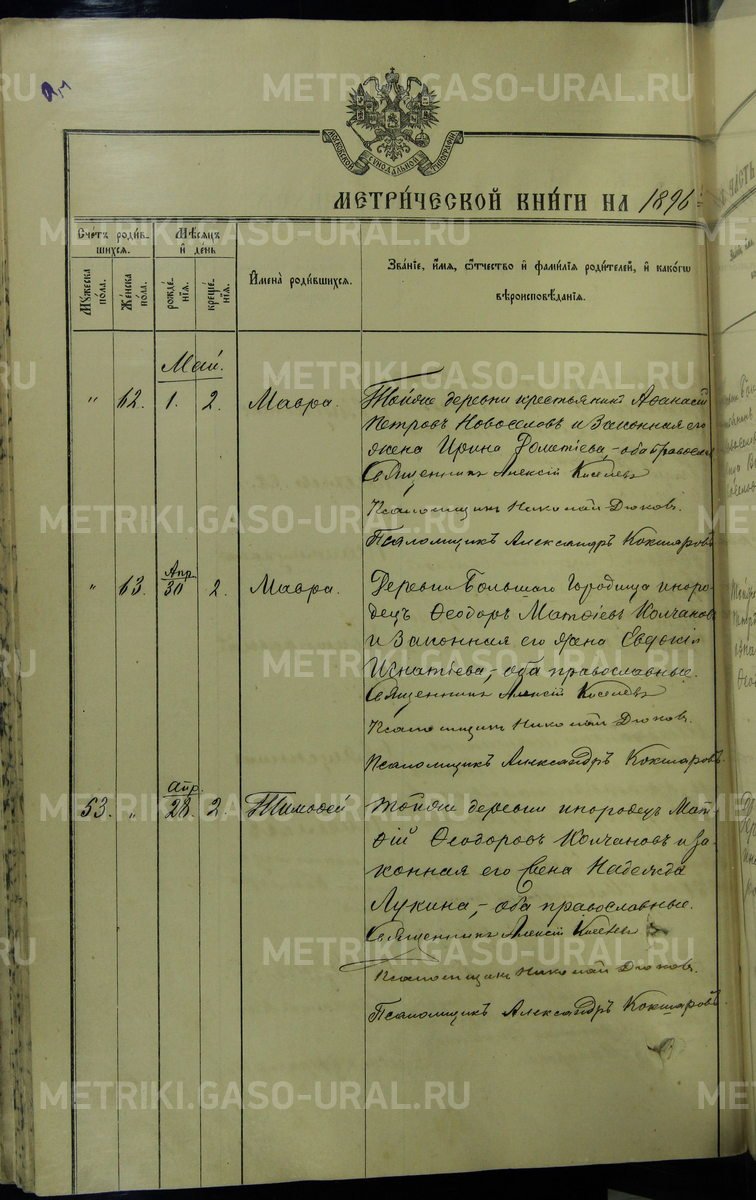 METRIKI.GASO-URAL.RU
МОСКОВСКОЙ СѴНОДАЛЬНОЙ ТИПОГРАФІИ
МЕТРИ́ЧЕСКОЙ КНИ́ГИ НА 1896
Сче́тъ роди́вшихся.
Мѣ́сяцъ и҆ де́нь
Мꙋ́жеска по́ла.
Же́нска по́ла.
рожде́нїѧ.
креще́нїѧ.
И҆мена̀ роди́вшихся.
Зва́нїе, и҆́мѧ, ѻ҆́тчество и҆ фами́лїѧ роди́телей, и҆ како́гѡ
вѣроисповѣ́данїѧ.
Май.
" 62. 1. 2. Мавра.
Той же деревни крестьянинъ Аѳанасій
Петровъ Новоселовъ и законная его
жена Ирина Дометіева, – оба православ
Священникъ Алексій Киселевъ
Псаломщикъ Николай Дюковъ.
Псаломщикъ Александръ Кокшаровъ
" 63. Апр. 30 2. Мавра.
Деревни Большаго Городища иноро-
децъ Ѳеодоръ Матѳіевъ Колчановъ
и законная его жена Евдокія
Игнатіева, – оба православные.
Священникъ Алексій Киселевъ
Псаломщикъ Николай Дюковъ.
Псаломщикъ Александръ Кокшаровъ
53. " Апр. 28. 2. Тимоѳей
Той же деревни инородецъ Мат-
ѳій Ѳеодоровъ Колчановъ и за-
конная его жена Надежда
Лукина, – оба православные.
Священникъ Алексій Киселевъ
Псаломщикъ Николай Дюковъ.
Псаломщикъ Александръ Кокшаровъ.